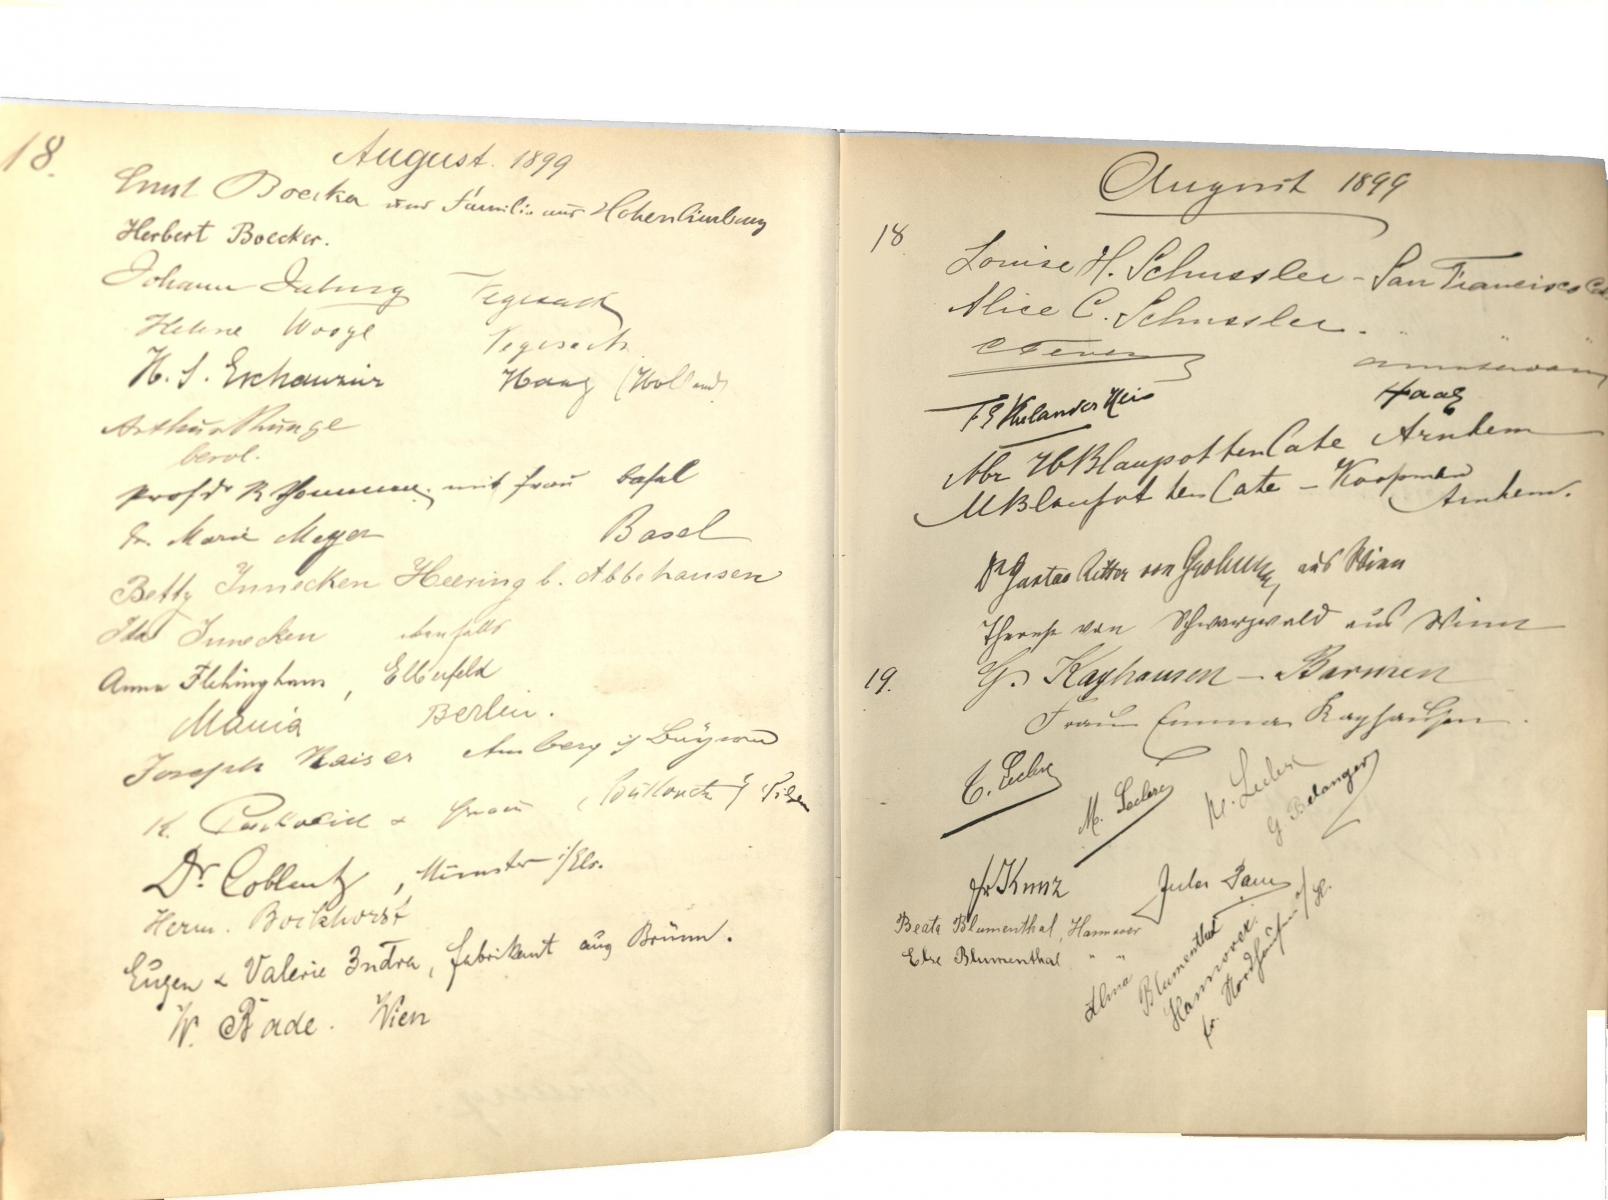 18.
August. 1899
Ernst Boecker und Familie aus Hohenlimburg
Herbert Boecker.
Johann Vegesack
Helene Vegesack
H. S. Eschauzier Haag (Holland)
Arthur Runge
berol.
Prof Dr R mit Frau Basel
Dr. Marie Meyer Basel
Betty Innecken Heering b. Abbehausen
Ida Innecken ebenfalls
Anna , Elberfeld
Maria Berlin.
Joseph Kaiser Amberg i/ Bayern
K. & Frau
Dr. Coblentz, Münster i/Els.
Herm. Bockhorst
Eugen & Valerie Indra, Fabrikant aus Brünn.
W. Bade. Wien
August 1899
18
Louise H. Schussler - San Francisco Cal
Alice C. Schussler. " "
Haag
Abr H Blaupot ten Cate Arnhem
M Blaupot ten Cate - Koopmans
Arnhem.
Dr Gustav Ritter von aus Wien
Therese von Schwarzwald aus Wien
19.
G. Kayhausen - Barmen
Frau Emma Kayhausen.
C. Leclerc
M. Leclerc
M. Leclerc
G Belanger
Fr Kunz
Jules
Beate Blumenthal, Hannover
Else Blumenthal " "
Alma Blumenthal
Hannover.
fr. Nordhausen a/H.